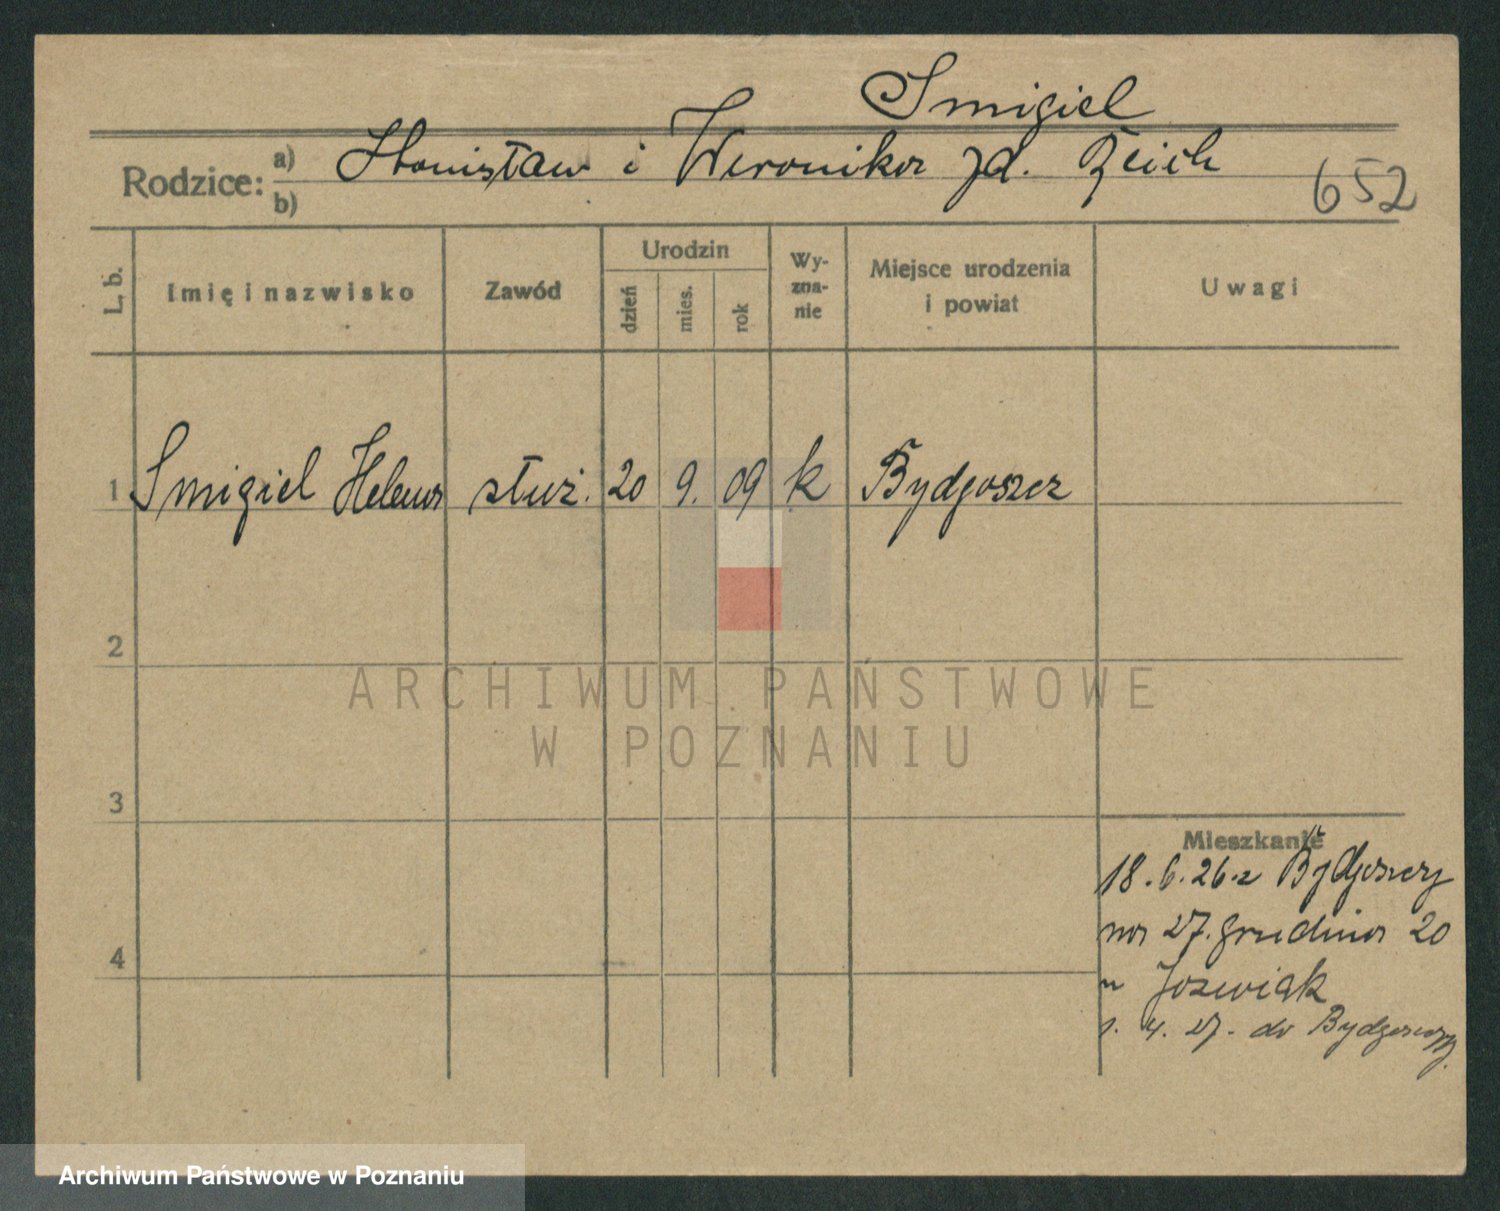 Smigiel
Rodzice: a) Stanisław i Weronika zd. Reich
b)
652
L. b.
Imię i nazwisko
Zawód
Urodzin
dzień
mies.
rok
Wy-
zna-
nie
Miejsce urodzenia
i powiat
Uwagi
1 Smigiel Helena służ. 20 9. 09 k Bydgoszcz
2
ARCHIWUM PAŃSTWOWE
W POZNANIU
3
Mieszkanie
18.6.26 z Bydgoszczy
na 27. Grudnia 20
4
u Jozwiak
1. 4. 27. do Bydgoszczy.
Archiwum Państwowe w Poznaniu